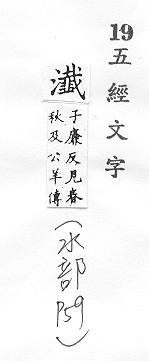 19五經文字
瀸
子廉反見春
秋及公羊傳
(水部P59)